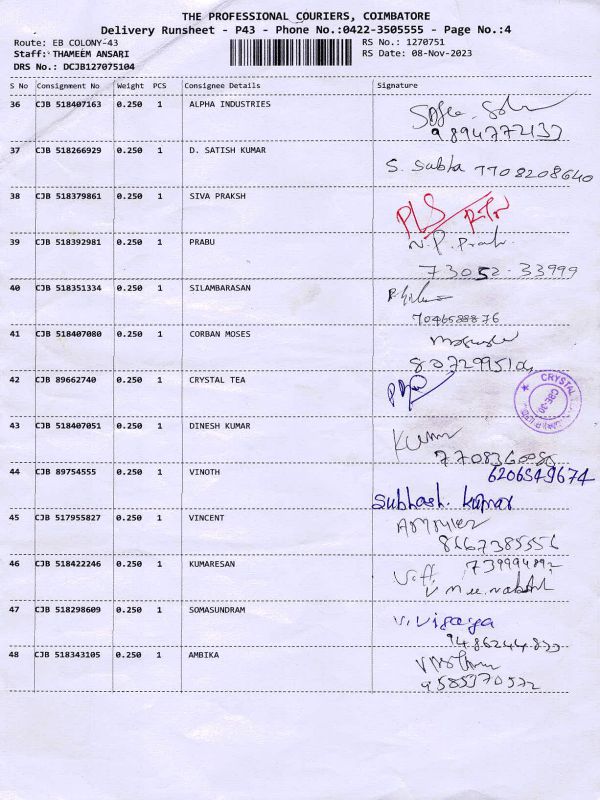 THE PROFESSIONAL COURIERS, COIMBATORE
Delivery Runsheet - P43 - Phone No.:0422-3505555 - Page No.:4
Route: EB COLONY-43 RS No.: 1270751
Staff: THAMEEM ANSARI RS Date: 08-Nov-2023
DRS No.: DCJB127075104
S No Consignment No Weight PCS Consignee Details Signature
36 CJB 518407163 0.250 1 ALPHA INDUSTRIES
9894772133
37 CJB 518266929 0.250 1 D. SATISH KUMAR
S. Subha 7708208640
38 CJB 518379861 0.250 1 SIVA PRAKSH
PLS
39 CJB 518392981 0.250 1 PRABU
N.P.
73052-33999
40 CJB 518351334 0.250 1 SILAMBARASAN
7046588876
41 CJB 518407080 0.250 1 CORBAN MOSES
8072995104
42 CJB 89662740 0.250 1 CRYSTAL TEA
CRYSTAL
CBE-30
43 CJB 518407051 0.250 1 DINESH KUMAR
Kumar
7708360080
44 CJB 89754555 0.250 1 VINOTH
6206549674
Subhash. kumar
45 CJB 517955827 0.250 1 VINCENT
8667385556
46 CJB 518422246 0.250 1 KUMARESAN
47 CJB 518298609 0.250 1 SOMASUNDRAM
V. Vijaya
9486244833
48 CJB 518343105 0.250 1 AMBIKA
9585370532